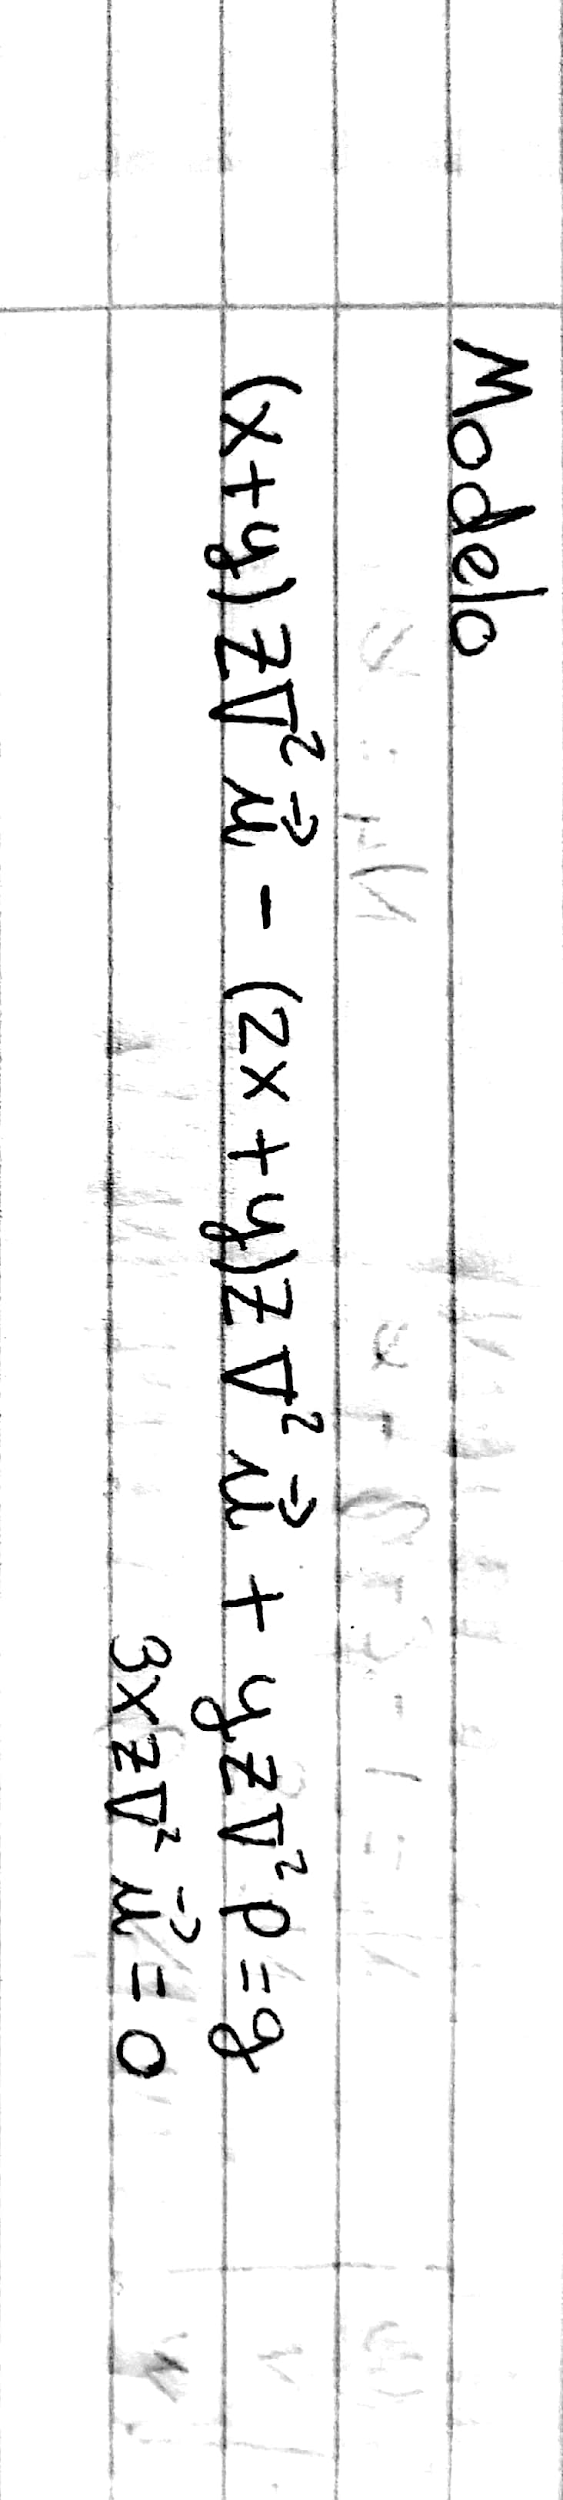 Modelo
(x+y)z∇²u⃗ - (2x+y)z∇²u⃗ + yz∇²p = g
3xz∇²u⃗ = 0